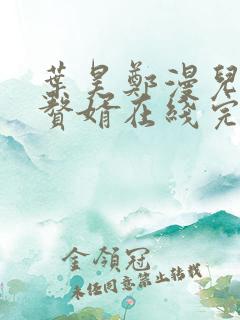 葉昊鄭漫兒
贅婿在綫完
金領冠
未經同意禁止轉載